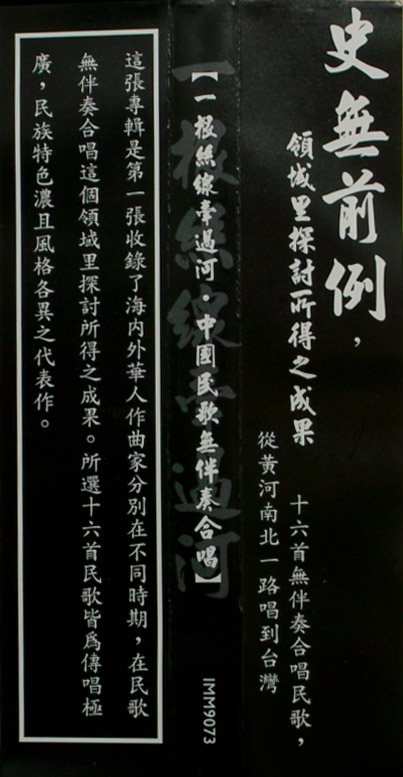 史無前例，
領域里探討所得之成果
十六首無伴奏合唱民歌，
從黃河南北一路唱到台灣
一根絲線牽過河
【一根絲線牽過河·中國民歌無伴奏合唱】
IMM9073
這張專輯是第一張收錄了海內外華人作曲家分別在不同時期，在民歌
無伴奏合唱這個領域里探討所得之成果。所選十六首民歌皆爲傳唱極
廣，民族特色濃且風格各異之代表作。